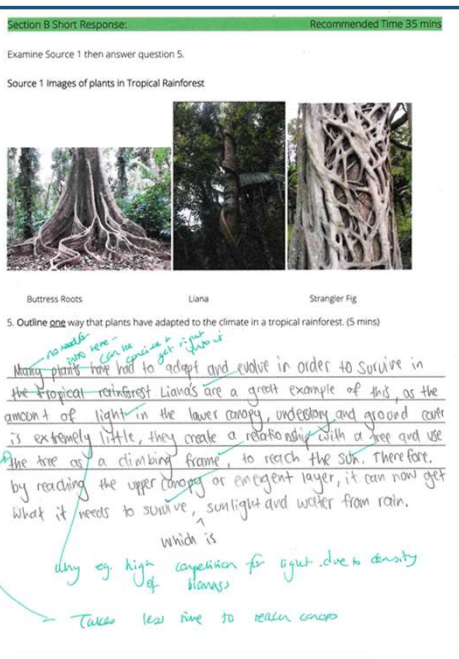 Section B Short Response: Recommended Time 35 mins
Examine Source 1 then answer question 5.
Source 1 Images of plants in Tropical Rainforest
Buttress Roots Liana Strangler Fig
5. Outline one way that plants have adapted to the climate in a tropical rainforest. (5 mins)
no need for
intro here -
can be
concise +
get right
into it
Many plants have had to adapt and evolve in order to survive in
the tropical rainforest Liana's are a great example of this, as the
amount of light in the lower canopy, understory and ground cover
is extremely little, they create a relationship with a tree and use
the tree as a climbing frame, to reach the sun. Therefore,
by reaching the upper canopy or emergent layer, it can now get
what it needs to survive, sunlight and water from rain.
which is
why eg. high competition for light. due to density
of biomass
Takes less time to reach canopy